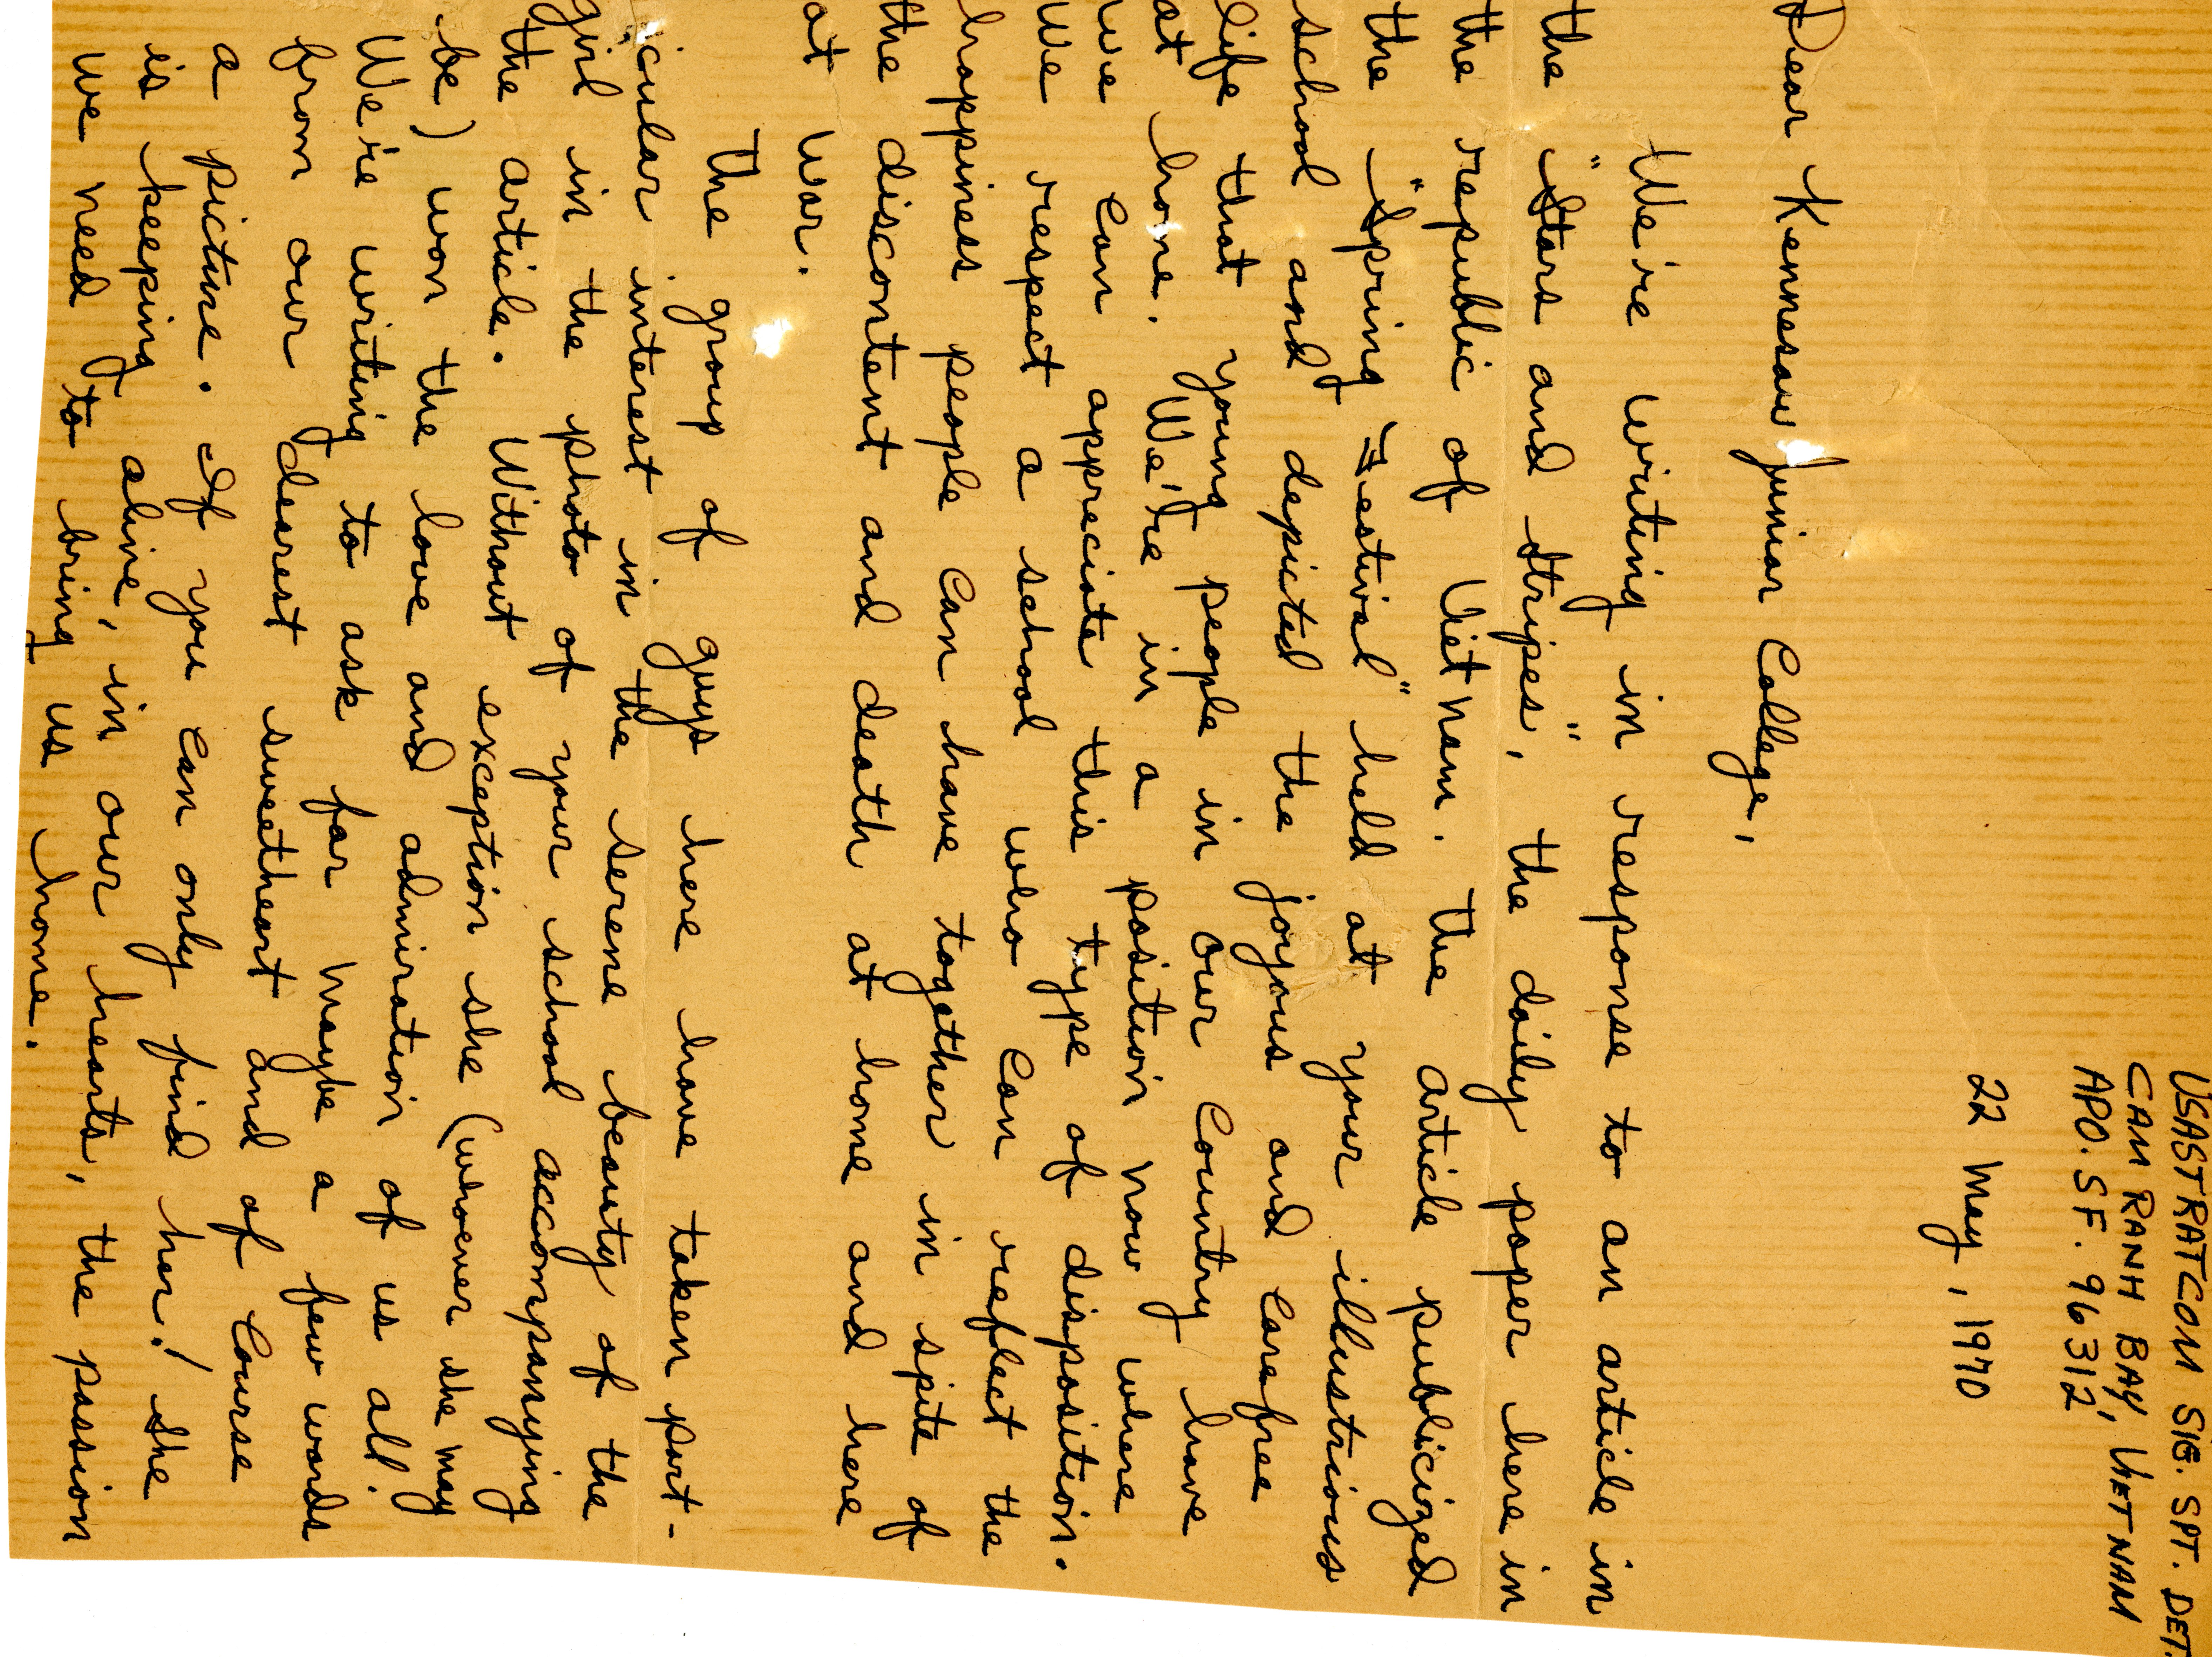 USASTRATCOM SIG. SPT. DET.
CAM RANH BAY, VIET NAM
APO. S F. 96312
22 May, 1970
Dear Kennesaw Junior College,
We're writing in response to an article in
the "Stars and Stripes", the daily paper here in
the republic of Viet nam. The article publicized
the "Spring Festival" held at your illustrious
school and depicted the joyous and carefree
life that young people in our Country have
at home. We're in a position now where
we can appreciate this type of disposition.
We respect a school who can reflect the
happiness people can have together in spite of
the discontent and death at home and here
at war.
The group of guys here have taken part-
icular interest in the serene beauty of the
girl in the photo of your school accompanying
the article. Without exception she (whoever she may
be) won the love and admiration of us all.
We're writing to ask for maybe a few words
from our dearest sweetheart and of course
a picture. If you can only find her! She
is keeping alive, in our hearts, the passion
we need to bring us home.